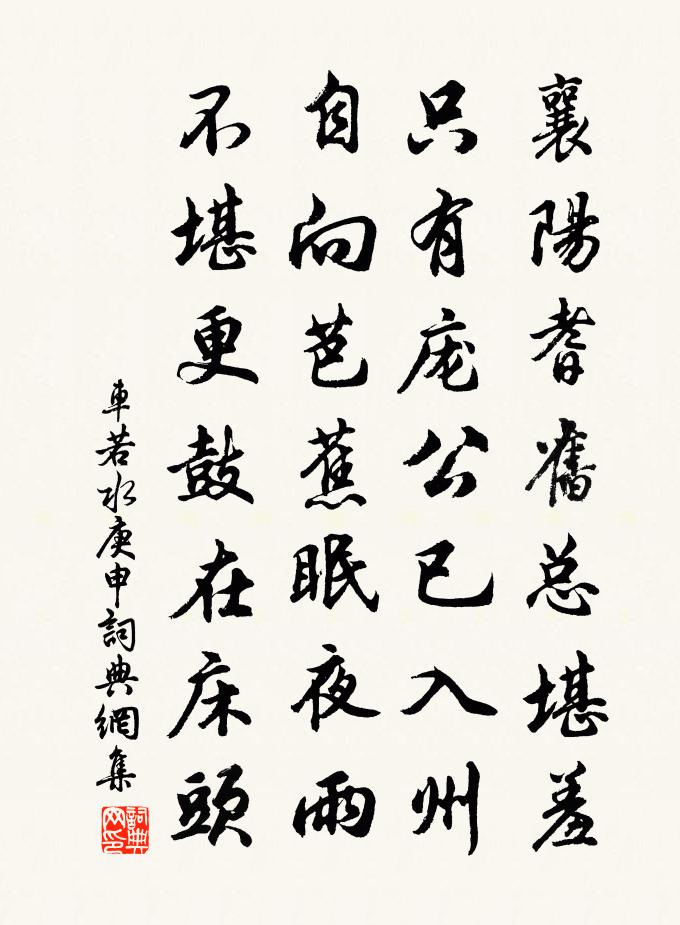 襄陽耆舊总堪羞
只有庞公已入州
自向芭蕉眠夜雨
不堪更鼓在床頭
車若水庚申詞典網集
詞典網印